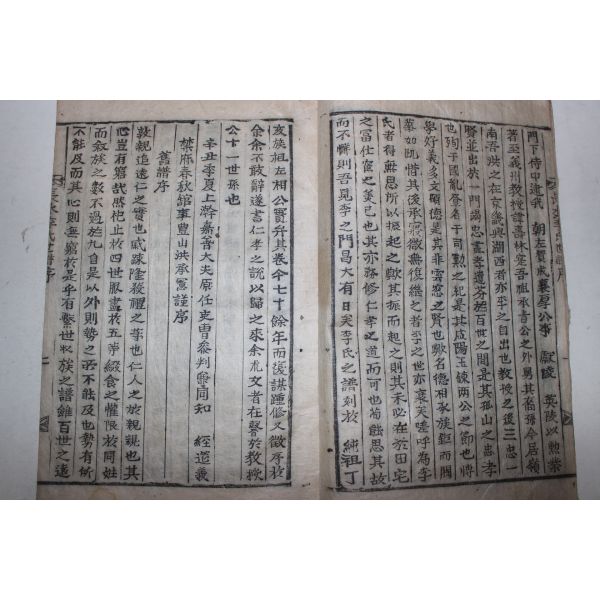 門下侍中逮我 朝左贊成襄原公事 獻陵 英陵以勲業
著至義州敎授諱壽林寔吾祖承旨公之外舅其裔孫今居嶺
南吾洪之在京畿與湖西者亦李之自出也敎授之後三忠一
賢並出於一門 忠 孝遺芬 百世之間是其孤山之忠孝
也殉于國亂登名于司勲之 是其咸陽玉 兩公之節也
學好 多文 德是其 之賢也歟名德相承族鉅而閥
如旣惜其後承寢微無復繼之者李之世亦衰矣嗟呼為李
氏者得無思所以振起之歟其振而起之則其未必在於田宅
之冨仕宦之美已也其亦務修仁孝之道而可也苟能思其故
而不懈則吾見李之門昌大有日矣李氏之譜刻於 純祖丁
亥族祖左相公實弁其卷今七十餘年而復謀踵修又徵序於
余余不敢辭遂書仁孝之說以歸之來余 文者在 於敎授
公十一世孫也
辛丑季夏上澣嘉善大夫原任吏曹參判兼同知 經筵義
禁府春秋館事豊山洪承憲謹序
舊譜序
敦親追遠仁之實也戚疎隆殺禮之等也仁人之於親親也其
心豈有窮哉然祀止於四世服盡於五等綴食之 限於同姓
而叙族之數不過於九自是以外則勢之所不能及也勢有所
不能及而其心則無窮於是乎有繫世收族之譜雖百世之遠